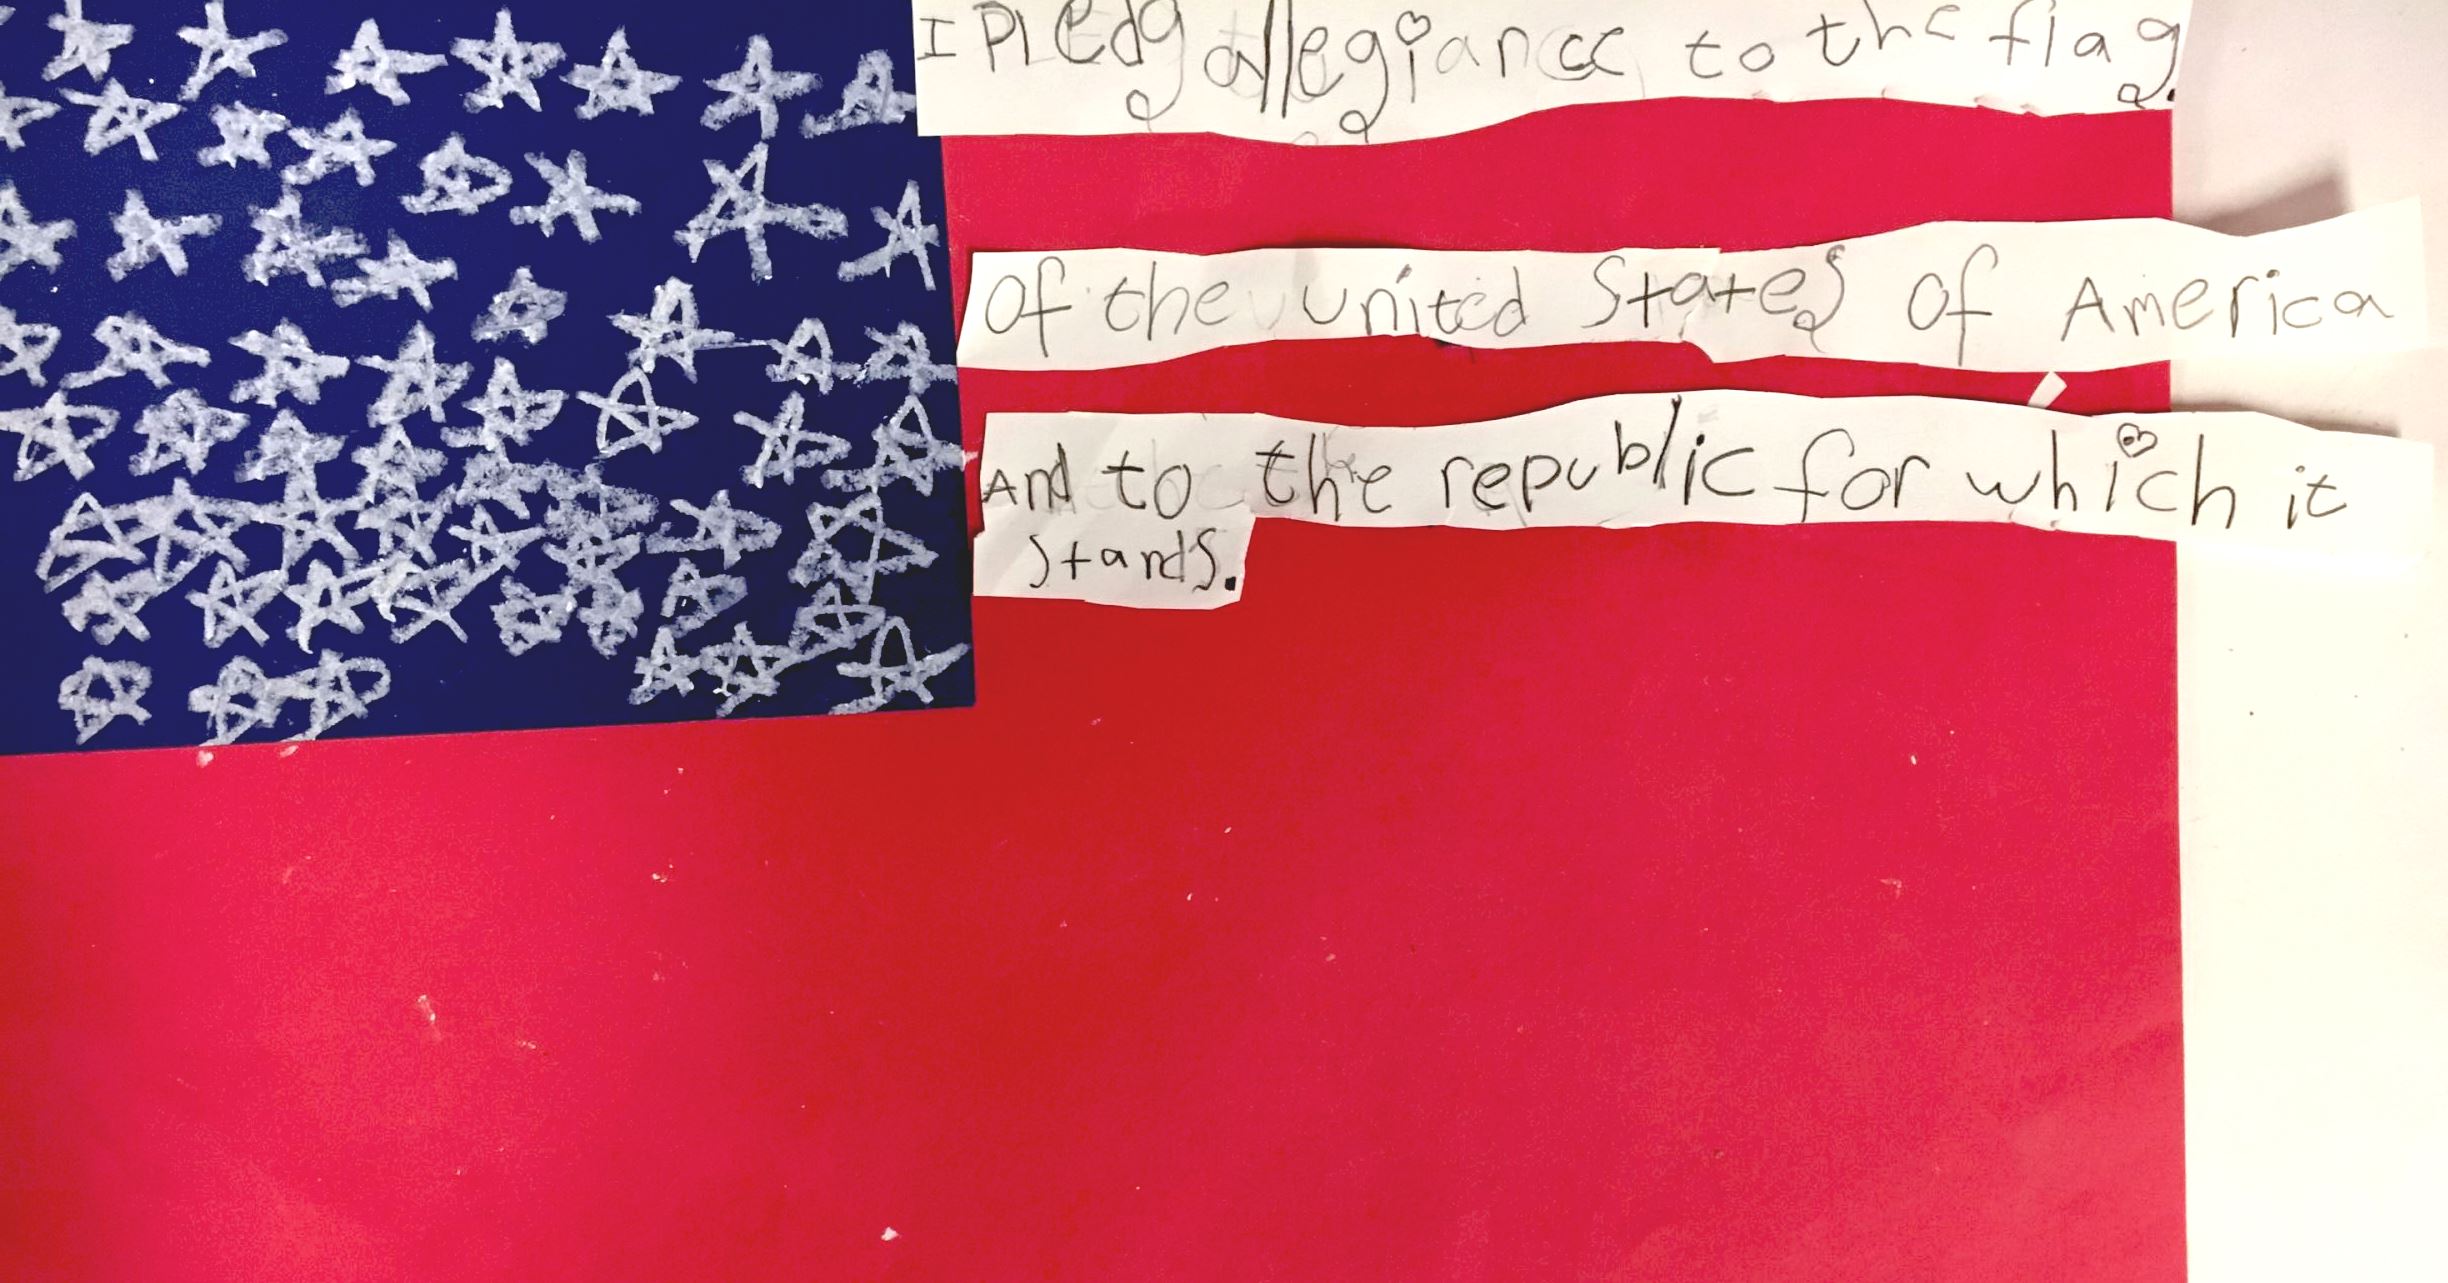 I Pledg allegiance to the flag.
Of the united States of America
And to the republic for which it
Stands.